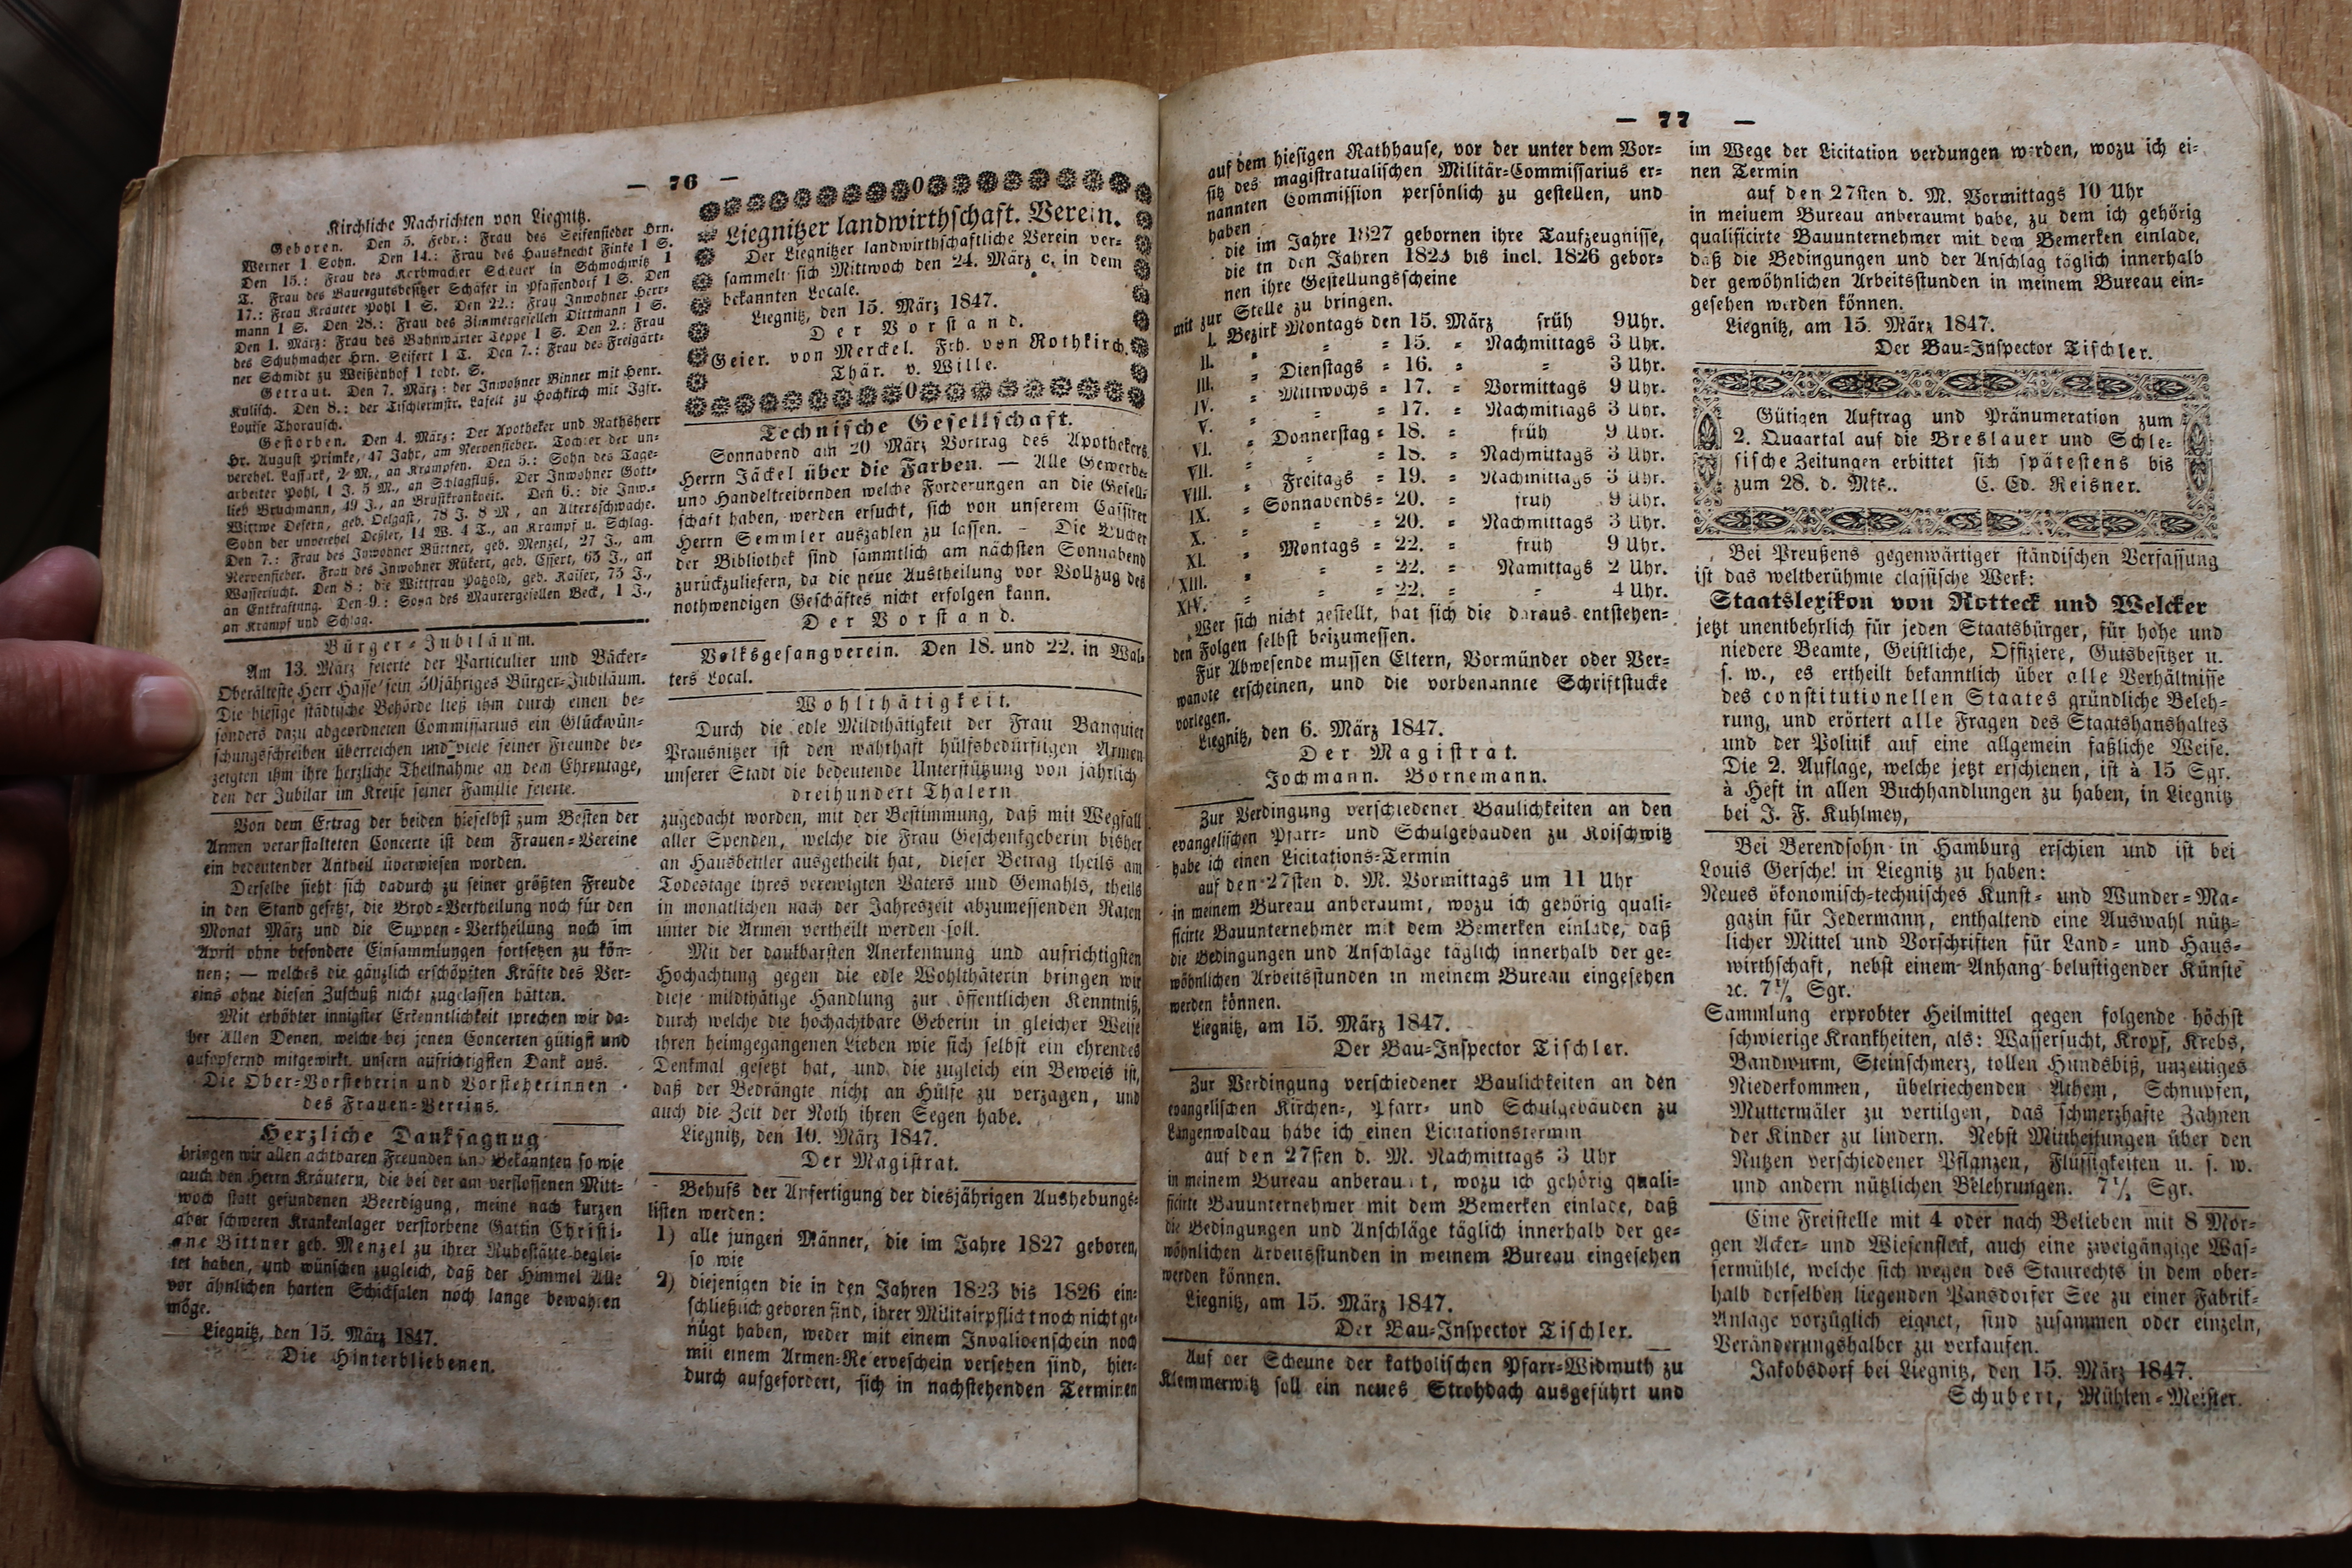 — 76 —
Kirchliche Nachrichten von Liegnitz.
Geboren. Den 5. Febr.: Frau des Seifensieder Hrn.
Werner 1 Sohn. Den 14.: Frau des Hausknecht Finke 1 S.
Den 15.: Frau des Korbmacher Scheuer in Schmochwitz 1
T. Frau des Bauergutsbesitzer Schäfer in Pfaffendorf 1 S. Den
17.: Frau Kräuter Pohl 1 S. Den 22.: Frau Inwohner Herr-
mann 1 S. Den 28.: Frau des Zimmergesellen Dittmann 1 S.
Den 1. März: Frau des Bahnwärter Teppe 1 S. Den 2.: Frau
des Schuhmacher Hrn. Seifert 1 T. Den 7.: Frau des Freigärt-
ner Schmidt zu Weißenhof 1 todt. S.
Getraut. Den 7. März: der Inwohner Binner mit Henr.
Kulisch. Den 8.: der Tischlermstr. Lafelt zu Hochkirch mit Igfr.
Louise Thorausch.
Gestorben. Den 4. März: Der Apotheker und Rathsherr
Hr. August Primke, 47 Jahr, am Nervenfieber. Tochter der un-
verehel. Lassart, 2 M., an Krämpfen. Den 5.: Sohn des Tage-
arbeiter Pohl, 1 J. 5 M., an Schlagfluß. Der Inwohner Gott-
lieb Bruchmann, 49 J., an Brustkrankheit. Den 6.: die Inw.-
Wittwe Desern, geb. Oelgast, 78 J. 8 M., an Altersschwäche.
Sohn der unverehel Deßler, 14 W. 4 T., an Krampf u. Schlag.
Den 7.: Frau des Inwohner Büttner, geb. Menzel, 27 J., am
Nervenfieber. Frau des Inwohner Rükert, geb. Essert, 63 J., an
Wassersucht. Den 8: die Wittfrau Patzold, geb. Kaiser, 73 J.,
an Entkräftung. Den 9.: Sohn des Maurergesellen Beck, 1 J.,
an Krampf und Schlag.
Bürger-Jubiläum.
Am 13. März feierte der Particulier und Bäcker-
Oberälteste Herr Hasse sein 50jähriges Bürger-Jubiläum.
Die hiesige städtische Behörde ließ ihm durch einen be-
sonders dazu abgeordneten Commissarius ein Glückwün-
schungsschreiben überreichen und viele seiner Freunde be-
zeigten ihm ihre herzliche Theilnahme an dem Ehrentage,
den der Jubilar im Kreise seiner Familie feierte.
Von dem Ertrag der beiden hieselbst zum Besten der
Armen veranstalteten Concerte ist dem Frauen-Vereine
ein bedeutender Antheil überwiesen worden.
Derselbe sieht sich dadurch zu seiner größten Freude
in den Stand gesetzt, die Brod-Vertheilung noch für den
Monat März und die Suppen-Vertheilung noch im
April ohne besondere Einsammlungen fortsetzen zu kön-
nen; — welches die gänzlich erschöpften Kräfte des Ver-
eins ohne diesen Zuschuß nicht zugelassen hätten.
Mit erhöhter innigster Erkenntlichkeit sprechen wir da-
her Allen Denen, welche bei jenen Concerten gütigst und
aufopfernd mitgewirkt, unsern aufrichtigsten Dank aus.
Die Ober-Vorsteherin und Vorsteherinnen
des Frauen-Vereins.
Herzliche Danksagnug
bringen wir allen achtbaren Freunden und Bekannten so wie
auch den Herrn Kräutern, die bei der am verflossenen Mitt-
woch statt gefundenen Beerdigung, meine nach kurzen
aber schweren Krankenlager verstorbene Gattin Christi-
ane Bittner geb. Menzel zu ihrer Ruhestätte beglei-
tet haben, und wünschen zugleich, daß der Himmel Alle
vor ähnlichen harten Schicksalen noch lange bewahren
möge.
Liegnitz, den 15. März 1847.
Die Hinterbliebenen.
Liegnitzer landwirthschaft. Verein.
Der Liegnitzer landwirthschaftliche Verein ver-
sammelt sich Mittwoch den 24. März c. in dem
bekannten Locale.
Liegnitz, den 15. März 1847.
Der Vorstand.
Geier. von Merckel. Frh. von Rothkirch.
Thär. v. Wille.
Technische Gesellschaft.
Sonnabend am 20 März Vortrag des Apothekers
Herrn Jäckel über die Farben. — Alle Gewerbe-
und Handeltreibenden welche Forderungen an die Gesell-
schaft haben, werden ersucht, sich von unserem Cassirer
Herrn Semmler auszahlen zu lassen. — Die Bücher
der Bibliothek sind sämmtlich am nächsten Sonnabend
zurückzuliefern, da die neue Austheilung vor Vollzug des
nothwendigen Geschäftes nicht erfolgen kann.
Der Vorstand.
Volksgesangverein. Den 18. und 22. in Wal-
ters Local.
Wohlthätigkeit.
Durch die edle Mildthätigkeit der Frau Banquier
Prausnitzer ist den wahrhaft hülfsbedürftigen Armen
unserer Stadt die bedeutende Unterstützung von jährlich
dreihundert Thalern
zugedacht worden, mit der Bestimmung, daß mit Wegfall
aller Spenden, welche die Frau Geschenkgeberin bisher
an Hausbettler ausgetheilt hat, dieser Betrag theils am
Todestage ihres verewigten Vaters und Gemahls, theils
in monatlichen nach der Jahreszeit abzumessenden Raten
unter die Armen vertheilt werden soll.
Mit der dankbarsten Anerkennung und aufrichtigsten
Hochachtung gegen die edle Wohlthäterin bringen wir
diese mildthätige Handlung zur öffentlichen Kenntniß,
durch welche die hochachtbare Geberin in gleicher Weise
ihren heimgegangenen Lieben wie sich selbst ein ehrendes
Denkmal gesetzt hat, und die zugleich ein Beweis ist,
daß der Bedrängte nicht an Hülfe zu verzagen, und
auch die Zeit der Noth ihren Segen habe.
Liegnitz, den 10. März 1847.
Der Magistrat.
Behufs der Anfertigung der diesjährigen Aushebungs-
listen werden:
1) alle jungen Männer, die im Jahre 1827 geboren,
so wie
2) diejenigen die in den Jahren 1823 bis 1826 ein-
schließlich geboren sind, ihrer Militairpflicht noch nicht ge-
nügt haben, weder mit einem Invalidenschein noch
mit einem Armen-Reserveschein versehen sind, hier-
durch aufgefordert, sich in nachstehenden Terminen
— 77 —
auf dem hiesigen Rathhause, vor der unter dem Vor-
sitz des magistratualischen Militär-Commissarius er-
nannten Commission persönlich zu gestellen, und
haben
die im Jahre 1827 gebornen ihre Taufzeugnisse,
die in den Jahren 1823 bis incl. 1826 gebor-
nen ihre Gestellungsscheine
mit zur Stelle zu bringen.
I. Bezirk Montags den 15. März früh 9 Uhr.
II. = = = 15. = Nachmittags 3 Uhr.
III. = Dienstags = 16. = = 3 Uhr.
IV. = Mittwochs = 17. = Vormittags 9 Uhr.
V. = = = 17. = Nachmittags 3 Uhr.
VI. = Donnerstag = 18. = früh 9 Uhr.
VII. = = = 18. = Nachmittags 3 Uhr.
VIII. = Freitags = 19. = Nachmittags 3 Uhr.
IX. = Sonnabends = 20. = früh 9 Uhr.
X. = = = 20. = Nachmittags 3 Uhr.
XI. = Montags = 22. = früh 9 Uhr.
XIII. = = = 22. = Namittags 2 Uhr.
XIV. = = = 22. = = 4 Uhr.
Wer sich nicht gestellt, hat sich die daraus entstehen-
den Folgen selbst beizumessen.
Für Abwesende müssen Eltern, Vormünder oder Ver-
wandte erscheinen, und die vorbenannte Schriftstücke
vorlegen.
Liegnitz, den 6. März 1847.
Der Magistrat.
Jochmann. Bornemann.
Zur Verdingung verschiedener Baulichkeiten an den
evangelischen Pfarr- und Schulgebäuden zu Koischwitz
habe ich einen Licitations-Termin
auf den 27sten d. M. Vormittags um 11 Uhr
in meinem Bureau anberaumt, wozu ich gehörig quali-
ficirte Bauunternehmer mit dem Bemerken einlade, daß
die Bedingungen und Anschläge täglich innerhalb der ge-
wöhnlichen Arbeitsstunden in meinem Bureau eingesehen
werden können.
Liegnitz, am 15. März 1847.
Der Bau-Inspector Tischler.
Zur Verdingung verschiedener Baulichkeiten an den
evangelischen Kirchen-, Pfarr- und Schulgebäuden zu
Langenwaldau habe ich einen Licitationstermin
auf den 27sten d. M. Nachmittags 3 Uhr
in meinem Bureau anberaumt, wozu ich gehörig quali-
ficirte Bauunternehmer mit dem Bemerken einlade, daß
die Bedingungen und Anschläge täglich innerhalb der ge-
wöhnlichen Arbeitsstunden in meinem Bureau eingesehen
werden können.
Liegnitz, am 15. März 1847.
Der Bau-Inspector Tischler.
Auf der Scheune der katholischen Pfarr-Widmuth zu
Klemmerwitz soll ein neues Strohdach ausgeführt und
im Wege der Licitation verdungen werden, wozu ich ei-
nen Termin
auf den 27sten d. M. Vormittags 10 Uhr
in meiuem Bureau anberaumt habe, zu dem ich gehörig
qualificirte Bauunternehmer mit dem Bemerken einlade,
daß die Bedingungen und der Anschlag täglich innerhalb
der gewöhnlichen Arbeitsstunden in meinem Bureau ein-
gesehen werden können.
Liegnitz, am 15. März 1847.
Der Bau-Inspector Tischler.
Gütigen Auftrag und Pränumeration zum
2. Quaartal auf die Breslauer und Schle-
sische Zeitungen erbittet sich spätestens bis
zum 28. d. Mts.. C. Ed. Reisner.
Bei Preußens gegenwärtiger ständischen Verfassung
ist das weltberühmte classische Werk:
Staatslexikon von Rotteck und Welcker
jetzt unentbehrlich für jeden Staatsbürger, für hohe und
niedere Beamte, Geistliche, Offiziere, Gutsbesitzer u.
s. w., es ertheilt bekanntlich über alle Verhältnisse
des constitutionellen Staates gründliche Beleh-
rung, und erörtert alle Fragen des Staatshanshaltes
und der Politik auf eine allgemein faßliche Weise.
Die 2. Auflage, welche jetzt erschienen, ist à 15 Sgr.
à Heft in allen Buchhandlungen zu haben, in Liegnitz
bei J. F. Kuhlmey,
Bei Berendsohn in Hamburg erschien und ist bei
Louis Gerschel in Liegnitz zu haben:
Neues ökonomisch-technisches Kunst- und Wunder-Ma-
gazin für Jedermann, enthaltend eine Auswahl nütz-
licher Mittel und Vorschriften für Land- und Haus-
wirthschaft, nebst einem Anhang belustigender Künste
ꝛc. 7½ Sgr.
Sammlung erprobter Heilmittel gegen folgende höchst
schwierige Krankheiten, als: Wassersucht, Kropf, Krebs,
Bandwurm, Steinschmerz, tollen Hundsbiß, unzeitiges
Niederkommen, übelriechenden Athem, Schnupfen,
Muttermäler zu vertilgen, das schmerzhafte Zahnen
der Kinder zu lindern. Nebst Mittheilungen über den
Nutzen verschiedener Pflanzen, Flüssigkeiten u. s. w.
und andern nützlichen Belehrungen. 7½ Sgr.
Eine Freistelle mit 4 oder nach Belieben mit 8 Mor-
gen Acker- und Wiesenfleck, auch eine zweigängige Was-
sermühle, welche sich wegen des Staurechts in dem ober-
halb derselben liegenden Pansdorfer See zu einer Fabrik-
Anlage vorzüglich eignet, sind zusammen oder einzeln,
Veränderungshalber zu verkaufen.
Jakobsdorf bei Liegnitz, den 15. März 1847.
Schubert, Mühlen-Meister.